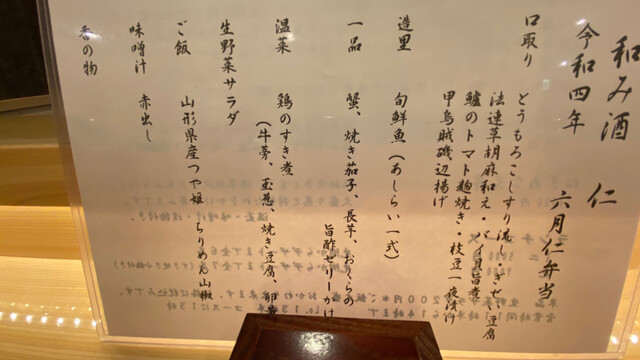 和み酒 仁
令和四年 六月仁弁当
口取り どうもろこしすり流し・きせい豆腐
法連草胡麻和え・バイ貝旨煮
鱸のトマト麹焼き・枝豆一夜漬け
甲烏賊磯辺揚げ
造里 旬鮮魚(あしらい一式)
一品 蟹、焼き茄子、長芋、おくらの
旨酢ゼリーかけ
温菜 鶏のすき煮
(牛蒡、玉葱、焼き豆腐、卵黄
生野菜サラダ
ご飯 山形県産つや姫 ちりめん山椒
味噌汁 赤出し
香の物